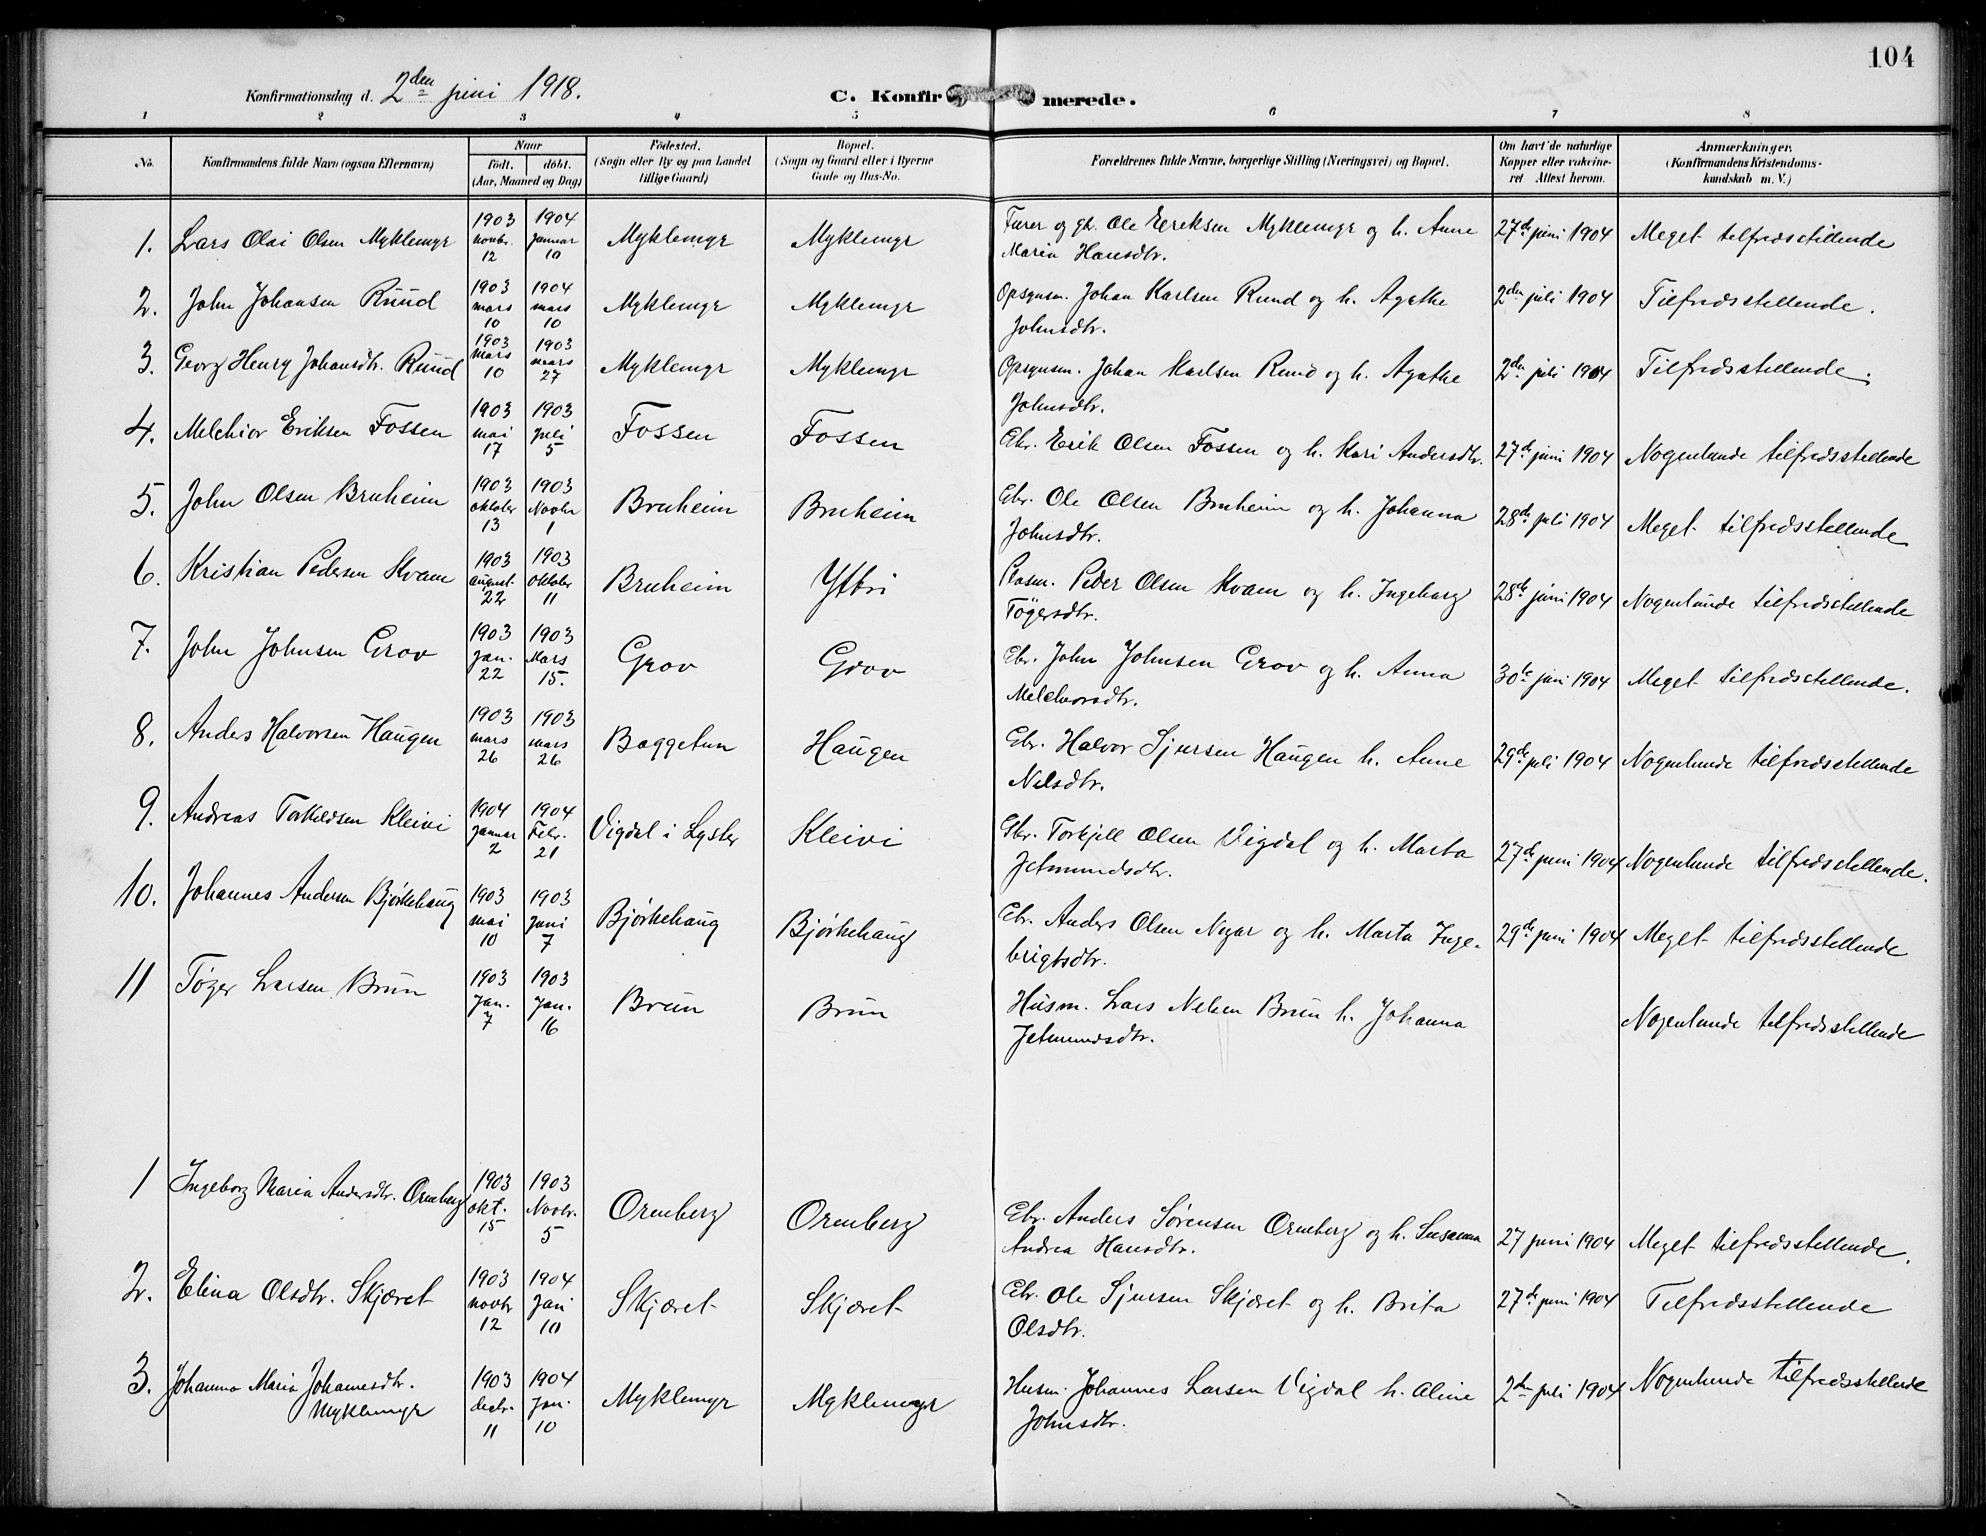 104
Konfirmationsdag d. 2den juni 1918.
C. Konfirmerede.
1 2 3 4 5 6 7 8
No.
Konfirmandens fulde Navn (ogsaa Efternavn)
Naar
födt. döbt.
(Aar, Maaned og Dag)
Födested.
(Sogn eller By og paa Landet
tillige Gaard)
Bopæl.
(Sogn og Gaard eller i Byerne
Gade og Hus-No.
Forældrenes fulde Navne, borgerlige Stilling (Næringsvei) og Bopæl.
Om havt de naturlige
Kopper eller vakcine-
ret Attest herom.
Anmærkninger.
(Konfirmandens Kristendoms-
kundskab m. V.)
1. Lars Olai Olsen Myklemyr 1903 novbr. 12 1904 Januar 10 Myklemyr Myklemyr Furer og gb. Ole Eeriksen Myklemyr og h. Anne
Maria Hansdtr. 27de juni 1904 Meget tilfredsstillende
2. John Johansen Ruud 1903 mars 10 1904 mars 10 Myklemyr Myklemyr Opsynsm. Johan Karlsen Ruud og h. Agathe
Johnsdtr. 2den juli 1904 Tilfredsstillende.
3. Georg Henry Johansdtr. Ruud 1903 mars 10 1903 mars 27 Myklemyr Myklemyr Opsynsm. Johan Karlsen Ruud og h. Agathe
Johnsdtr. 2den juli 1904 Tilfredsstillende.
4. Melchior Eriksen Fossen 1903 mai 17 1903 juli 5 Fossen Fossen Gbr. Erik Olsen Fossen og h. Kari Andersdtr. 27de juni 1904 Nogenlunde tilfredsstillende
5. John Olsen Bruheim 1903 oktober 13 1903 Novbr 1 Bruheim Bruheim Gbr. Ole Olsen Bruheim og h. Johanna
Johnsdtr. 28de juli 1904 Meget tilfredsstillende
6. Kristian Pedersen Kvam 1903 august 22 1903 oktober 11 Bruheim Ytbri Plasm. Peder Olsen Kvam og h. Ingeborg
Tøgersdtr. 28de juni 1904 Nogenlunde tilfredsstillende
7. John Johnsen Grov 1903 Jan. 22 1903 Mars 15. Grov Grov Gbr. John Johnsen Grov og h. Anna
Melchiorsdtr. 30te juni 1904 Meget tilfredsstillende.
8. Anders Halvorsen Haugen 1903 mars 26 1903 mars 26 Baggetun Haugen Gbr. Halvor Sjursen Haugen h. Anne
Nilsdtr. 29de juli 1904 Nogenlunde tilfredsstillende
9. Andreas Torkildsen Kleivi 1904 Januar 2 1904 Febr. 21 Vigdal i Lyster Kleivi Gbr. Torkjell Olsen Vigdal og h. Marta
Jetmundsdtr. 27de juni 1904 Nogenlunde tilfredsstillende.
10. Johannes Andersen Bjørkehaug 1903 mai 10 1903 Juni 7 Bjørkehaug Bjørkehaug Gbr. Anders Olsen og h. Marta Inge-
brigtsdtr. 29de juni 1904 Meget tilfredsstillende
11 Tøger Larsen Brun 1903 Jan. 7 1903 Jan. 16 Brun Brun Husm. Lars Nilsen Brun h. Johanna
Jetmundsdtr. Nogenlunde tilfredsstillende
1 Ingeborg Maria Andersdtr. Ormberg 1903 okt. 15 1903 Novbr. 5 Ormberg Ormberg Gbr. Anders Sørensen Ormberg og h. Susanna
Andrea Hansdtr. 27 juni 1904 Meget tilfredsstillende.
2. Elina Olsdtr. Skjæret 1903 novbr 12 1904 Jan 10 Skjæret Skjæret Gbr. Ole Sjursen Skjæret og h. Brita
Olsdtr. 27de juni 1904 Tilfredsstillende
3. Johanna Maria Johannesdtr.
Myklemyr 1903 decbr. 11 1904 Jan. 10 Myklemyr Myklemyr Husm. Johannes Larsen Vigdal h. Aline
Johnsdtr. 2den juli 1904 Nogenlunde tilfredsstillende